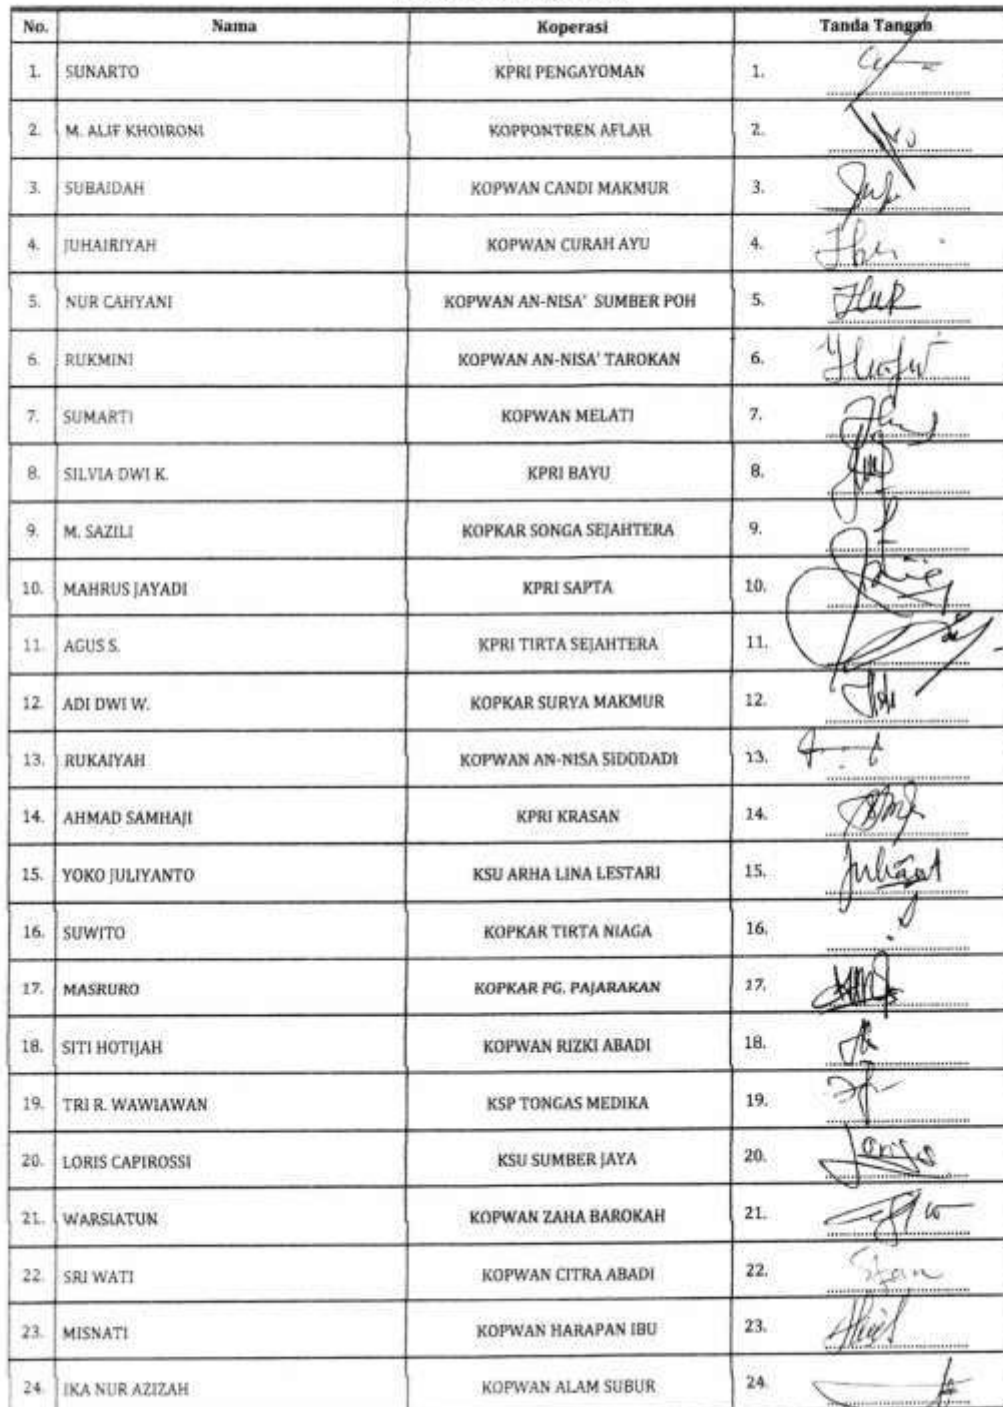 No. Nama Koperasi Tanda Tangan
1. SUNARTO KPRI PENGAYOMAN 1.
2. M. ALIF KHOIRONI KOPPONTREN AFLAH 2.
3. SUBAIDAH KOPWAN CANDI MAKMUR 3.
4. JUHAIRIYAH KOPWAN CURAH AYU 4.
5. NUR CAHYANI KOPWAN AN-NISA' SUMBER POH 5.
6. RUKMINI KOPWAN AN-NISA' TAROKAN 6.
7. SUMARTI KOPWAN MELATI 7.
8. SILVIA DWI K. KPRI BAYU 8.
9. M. SAZILI KOPKAR SONGA SEJAHTERA 9.
10. MAHRUS JAYADI KPRI SAPTA 10.
11. AGUS S. KPRI TIRTA SEJAHTERA 11.
12. ADI DWI W. KOPKAR SURYA MAKMUR 12.
13. RUKAIYAH KOPWAN AN-NISA SIDODADI 13.
14. AHMAD SAMHAJI KPRI KRASAN 14.
15. YOKO JULIYANTO KSU ARHA LINA LESTARI 15.
16. SUWITO KOPKAR TIRTA NIAGA 16.
17. MASRURO KOPKAR PG. PAJARAKAN 17.
18. SITI HOTIJAH KOPWAN RIZKI ABADI 18.
19. TRI R. WAWIAWAN KSP TONGAS MEDIKA 19.
20. LORIS CAPIROSSI KSU SUMBER JAYA 20.
21. WARSIATUN KOPWAN ZAHA BAROKAH 21.
22. SRI WATI KOPWAN CITRA ABADI 22.
23. MISNATI KOPWAN HARAPAN IBU 23.
24. IKA NUR AZIZAH KOPWAN ALAM SUBUR 24.